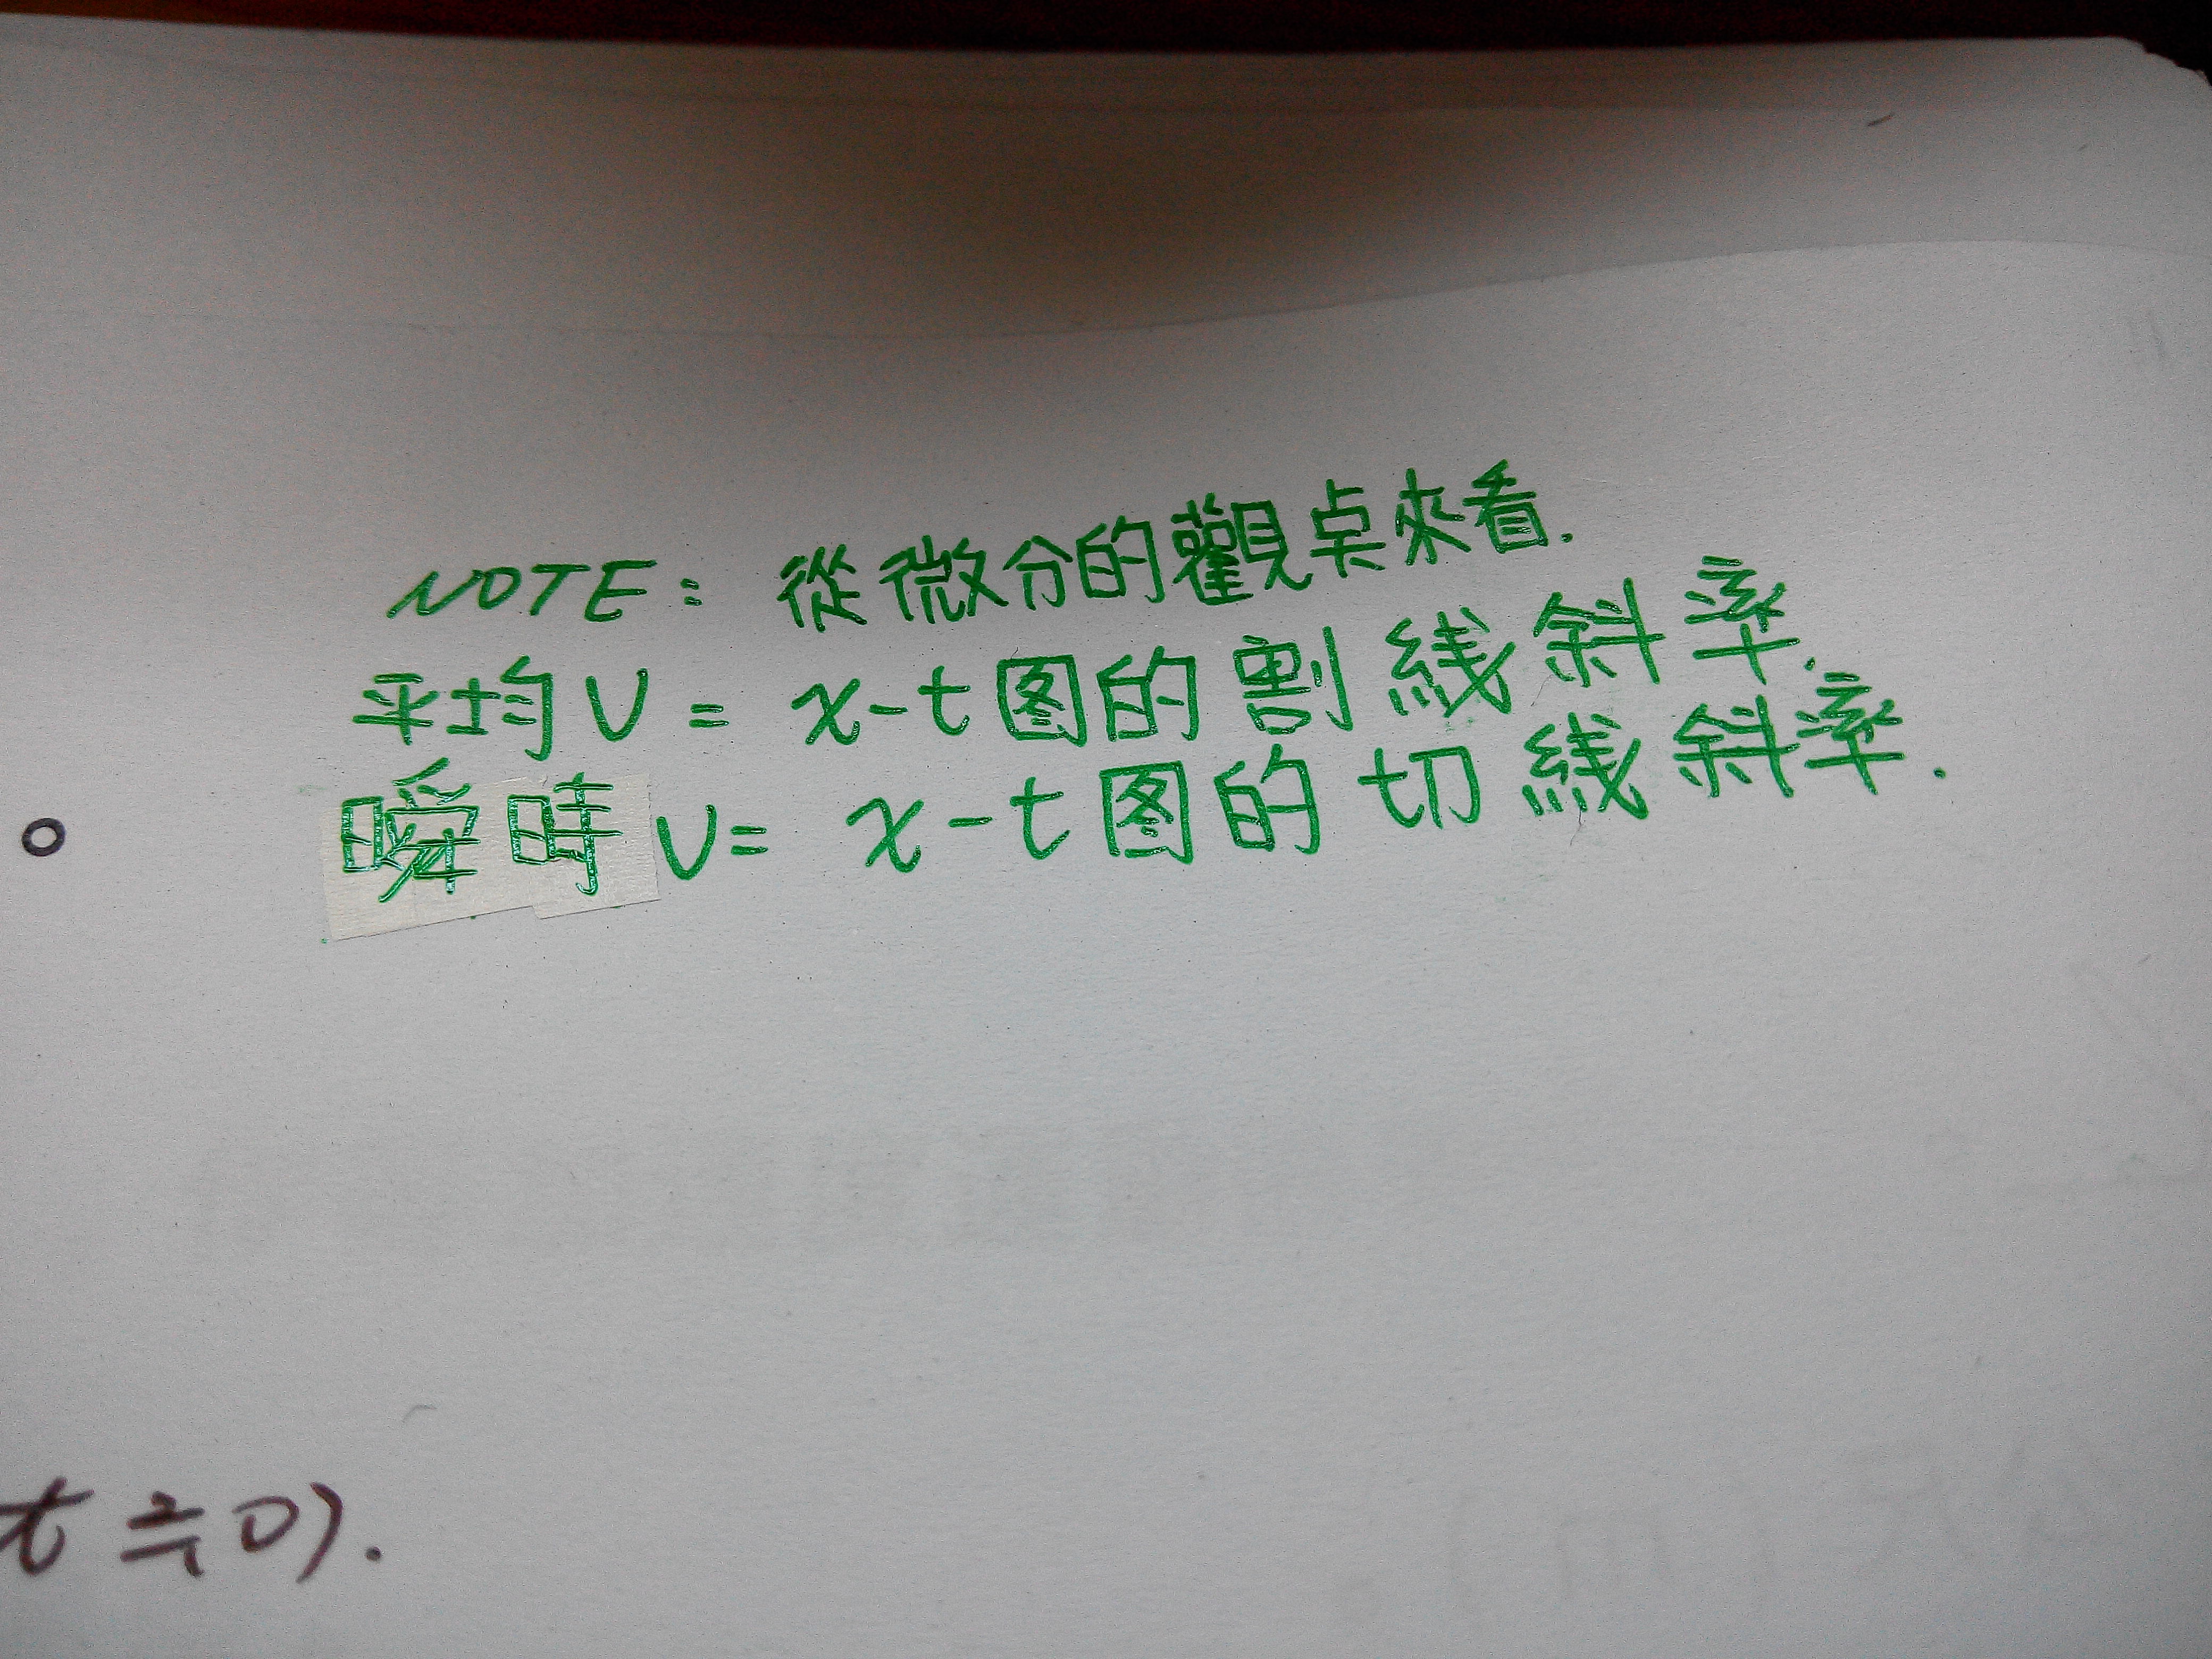 NOTE: 從微分的觀点來看.
平均V = x-t图的割綫斜率.
瞬時V= x-t图的切綫斜率.
t≒0).